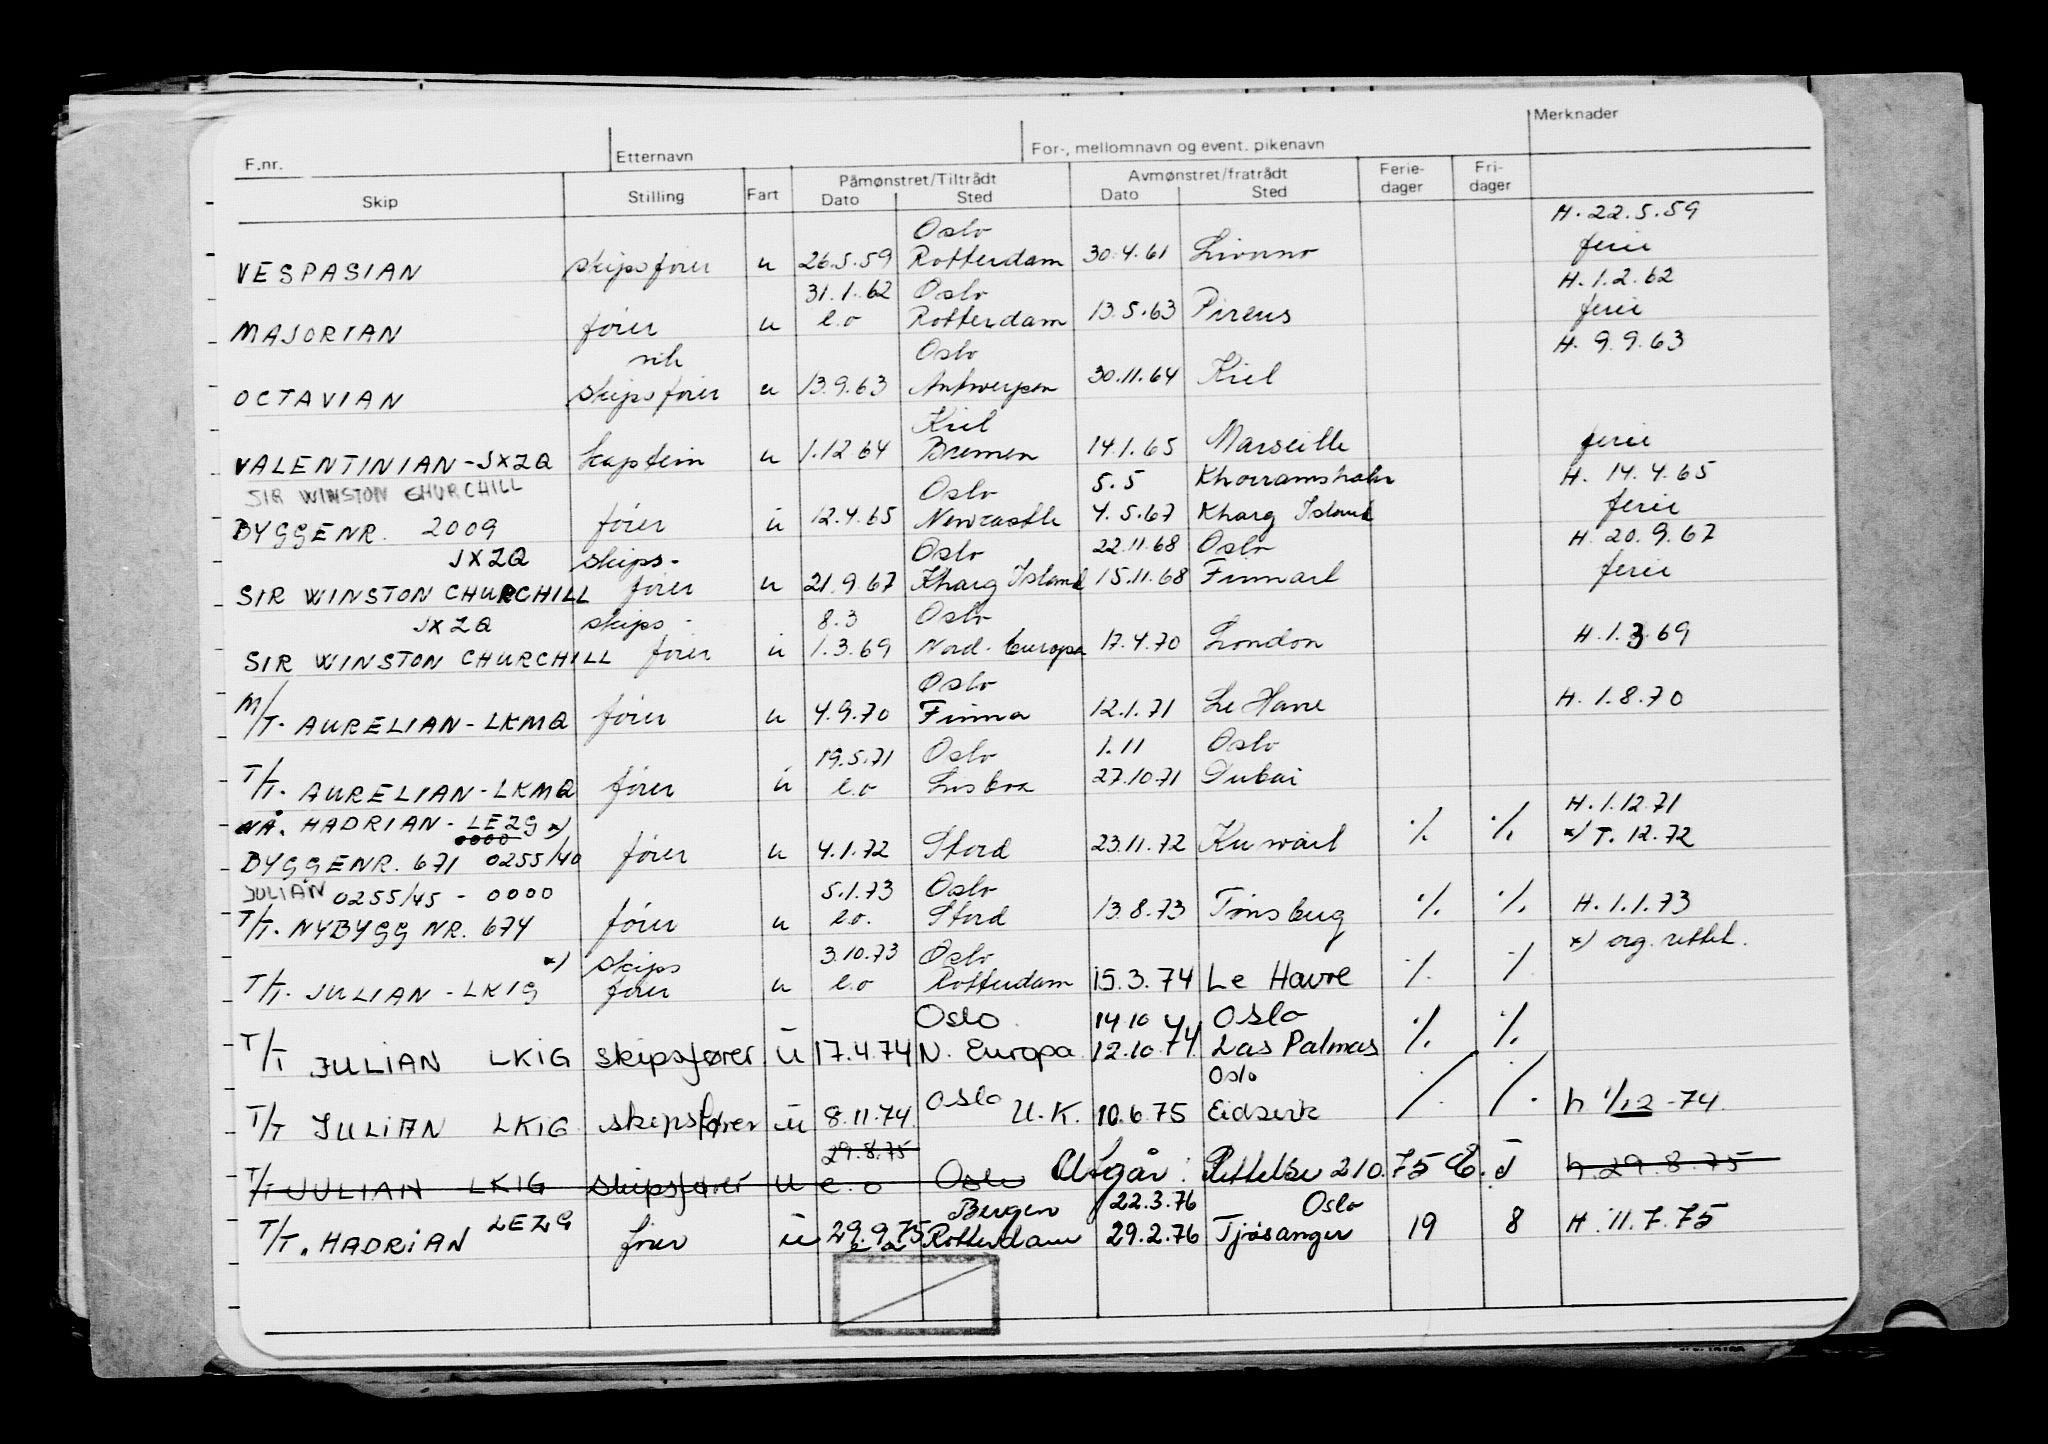 F.nr. Etternavn For-, mellomnavn og event. pikenavn Merknader
Skip Stilling Fart Påmønstret/Tiltrådt Avmønstret/fratrådt Ferie- Fri-
Dato Sted Dato Sted dager dager
Oslo H. 22.5.59
VESPASIAN skipsfører u 26.5.59 Rotterdam 30.4.61 Livorno ferie
31.1.62 Oslo H. 1.2.62
MAJORIAN fører u e.o Rotterdam 13.5.63 Pireus ferie
Oslo H. 9.9.63
OCTAVIAN skipsfører u 13.9.63 Antwerpen 30.11.64 Kiel
Kiel
VALENTINIAN - JXZQ kaptein u 1.12 64 Bremen 14.1.65 Marseille ferie
SIR WINSTON CHURCHILL Oslo 5.5 H. 14.4.65
BYGGENR. 2009 fører u 12.4.65 Newcastle 4.5.67 Kharg Island ferie
JXZQ skips- Oslo 22.11.68 Oslo H. 20.9.67
SIR WINSTON CHURCHILL fører u 21.9.67 Kharg Island 15.11.68 Finnart ferie
JXZQ skips- 8.3 Oslo
SIR WINSTON CHURCHILL fører u 1.3.69 Nord-Europa 17.4.70 London H. 1.3.69
Oslo
M/T. AURELIAN - LKMQ fører u 4.9.70 Finna 12.1.71 Le Havre H. 1.8.70
19.5.71 Oslo 1.11 Oslo
T/T. AURELIAN - LKMQ fører u e.o Lisboa 27.10.71 Dubai
NÅ. HADRIAN - LEZG x) H. 1.12.71
0000
BYGGENR. 671 0255/40 fører u 4.1.72 Stord 23.11.72 Kuwait ./. ./. x) T. 12.72
JULIAN 0255/45 - 0000 5.1.73 Oslo
T/T. NYBYGG NR. 674 fører u e.o. Stord 13.8.73 Tønsberg ./. ./. H. 1.1.73
x) skips 3.10.73 Oslo x) org. rettet.
T/T. JULIAN - LKIG fører u e.o Rotterdam 15.3.74 Le Havre ./. ./.
Oslo 14 10 74 Oslo
T/T JULIAN LKIG skipsfører u 17.4.74 N. Europa 12.10.74 Las Palmas ./. ./.
Oslo Oslo
T/T JULIAN LKIG skipsfører u 8.11.74 U.K. 10.6.75 Eidsvik ./. ./. h 1/12-74
29.8.75
T/T JULIAN LKIG skipsfører u e.o Oslo Utgår: Rettelse 210.75 E.J h 29.8.75
Bergen 22.3.76 Oslo
T/T. HADRIAN LEZG fører u 29.9.75 e a Rotterdam 29.2.76 Tjøsanger 19 8 H. 11.7.75